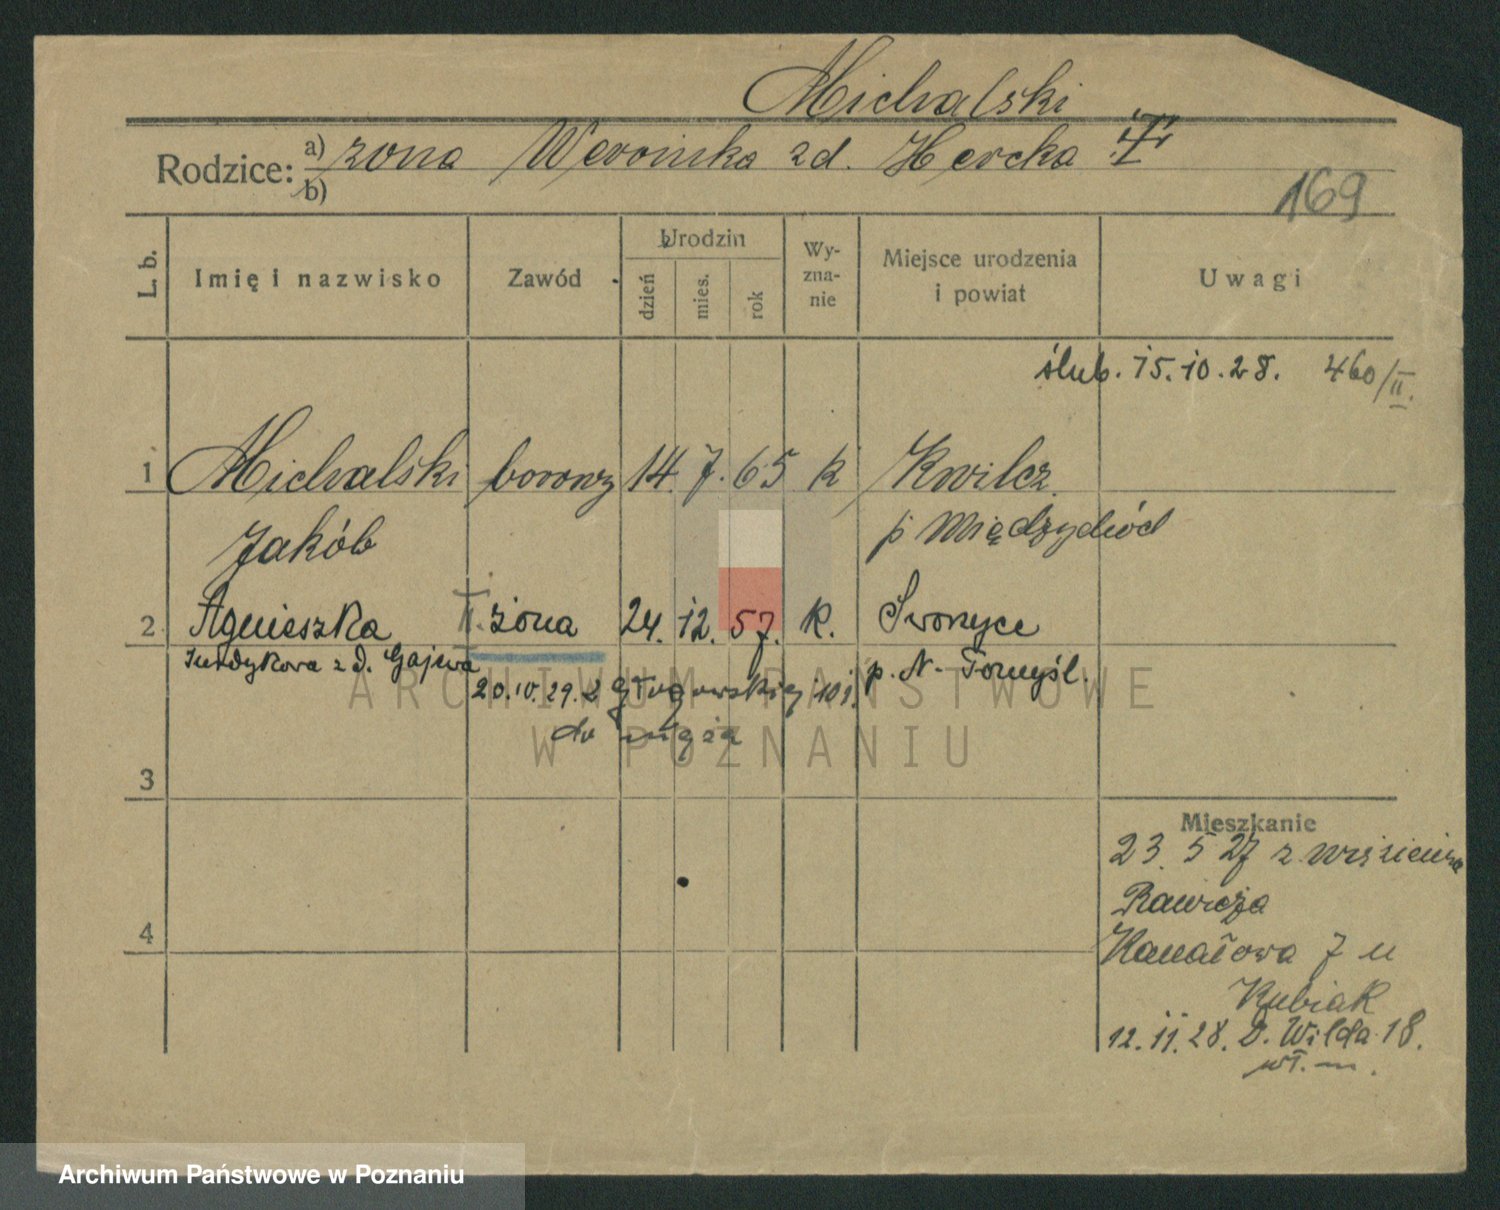 Michalski
Rodzice: a) zona Weronika zd. Hercka
b)
169
L. b. Imię i nazwisko Zawód Urodzin dzień mies. rok Wyznanie Miejsce urodzenia i powiat Uwagi
ślub. 15.10.28. 460/II.
1 Michalski 14. 7. 65 k Kwilcz
Jakób p Międzychód
2 Agnieszka II. żona 24. 12. 57. k.
z d. Gajewa p. N. Tomyśl.
20.IV.29. z Głogowskiej 101.
do męża
ARCHIWUM PAŃSTWOWE
W POZNANIU
3
Mieszkanie
23. 5 27 z więzienia
Rawicza
4
Kanałowa 7 u
Kubiak
12. 11. 28. D. Wilda 18.
wł. m.
Archiwum Państwowe w Poznaniu